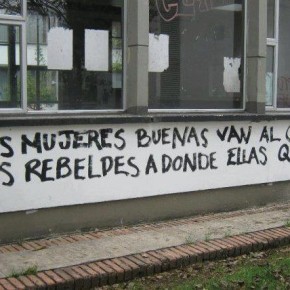 S MUJERES BUENAS VAN AL C
S REBELDES A DONDE ELLAS Q